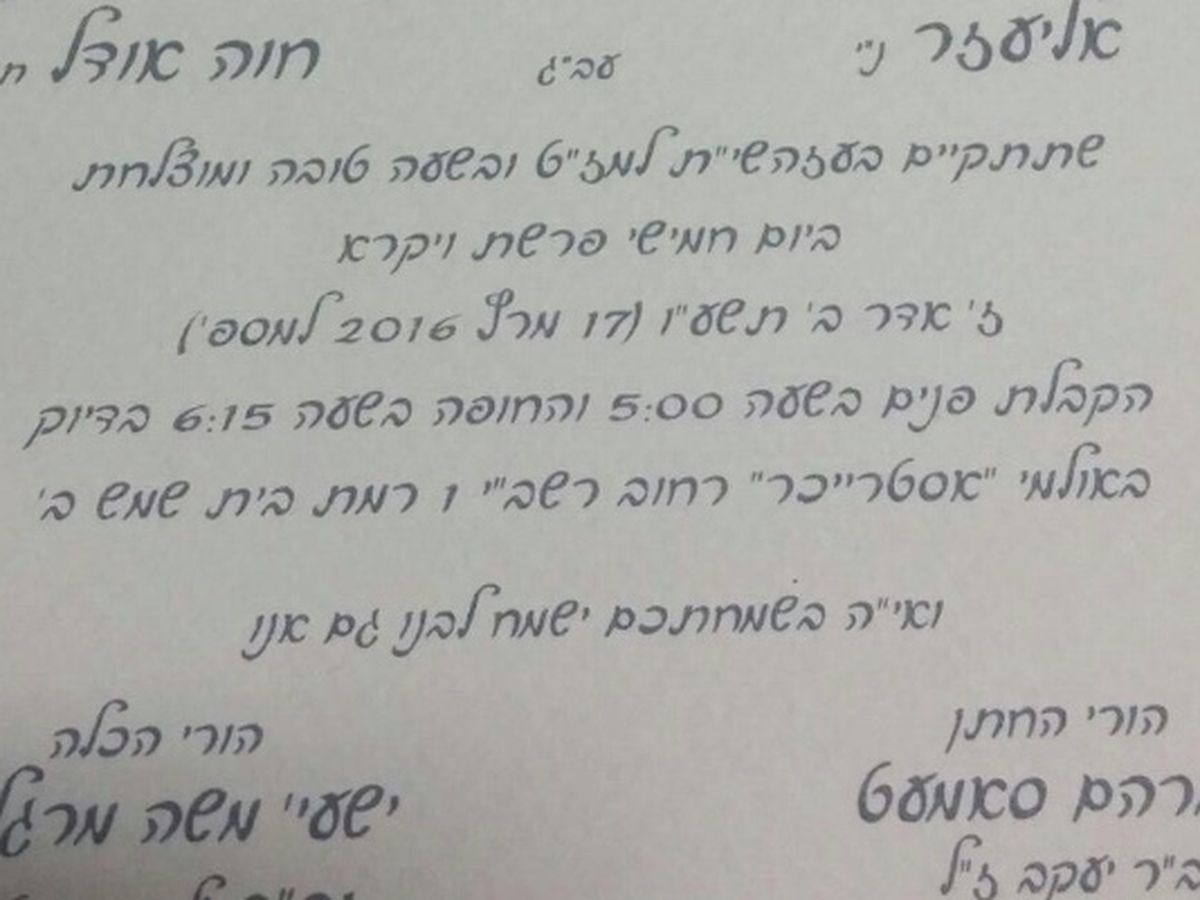 אליעזר ני" עב"ג חוה אודל
שתתקיים בעזהשי"ת למז"ט ובשעה טובה ומוצלחת
ביום חמישי פרשת ויקרא
ז' אדר ב' תשע"ו (17 מרץ 2016 למספ')
הקבלת פנים בשעה 5:00 והחופה בשעה 6:15 בדיוק
באולמי "אסטרייכר" רחוב רשב"י 1 רמת בית שמש ב'
ואי"ה בשמחתכם ישמח לבנו גם אנו
הורי החתן הורי הכלה
סאמעט ישעי' משה
ב"ר יעקב ז"ל